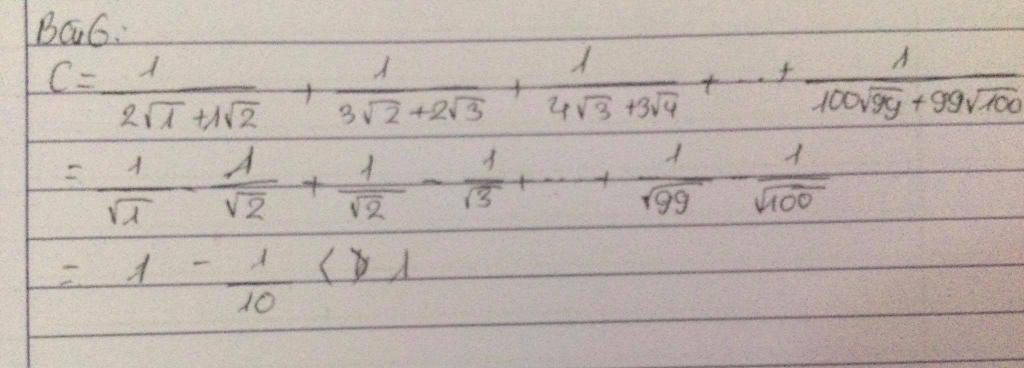 Bài 6:
C = 1/(2√1 + 1√2) + 1/(3√2 + 2√3) + 1/(4√3 + 3√4) + ... + 1/(100√99 + 99√100)
= 1/√1 - 1/√2 + 1/√2 - 1/√3 + ... + 1/√99 - 1/√100
= 1 - 1/10 < 1